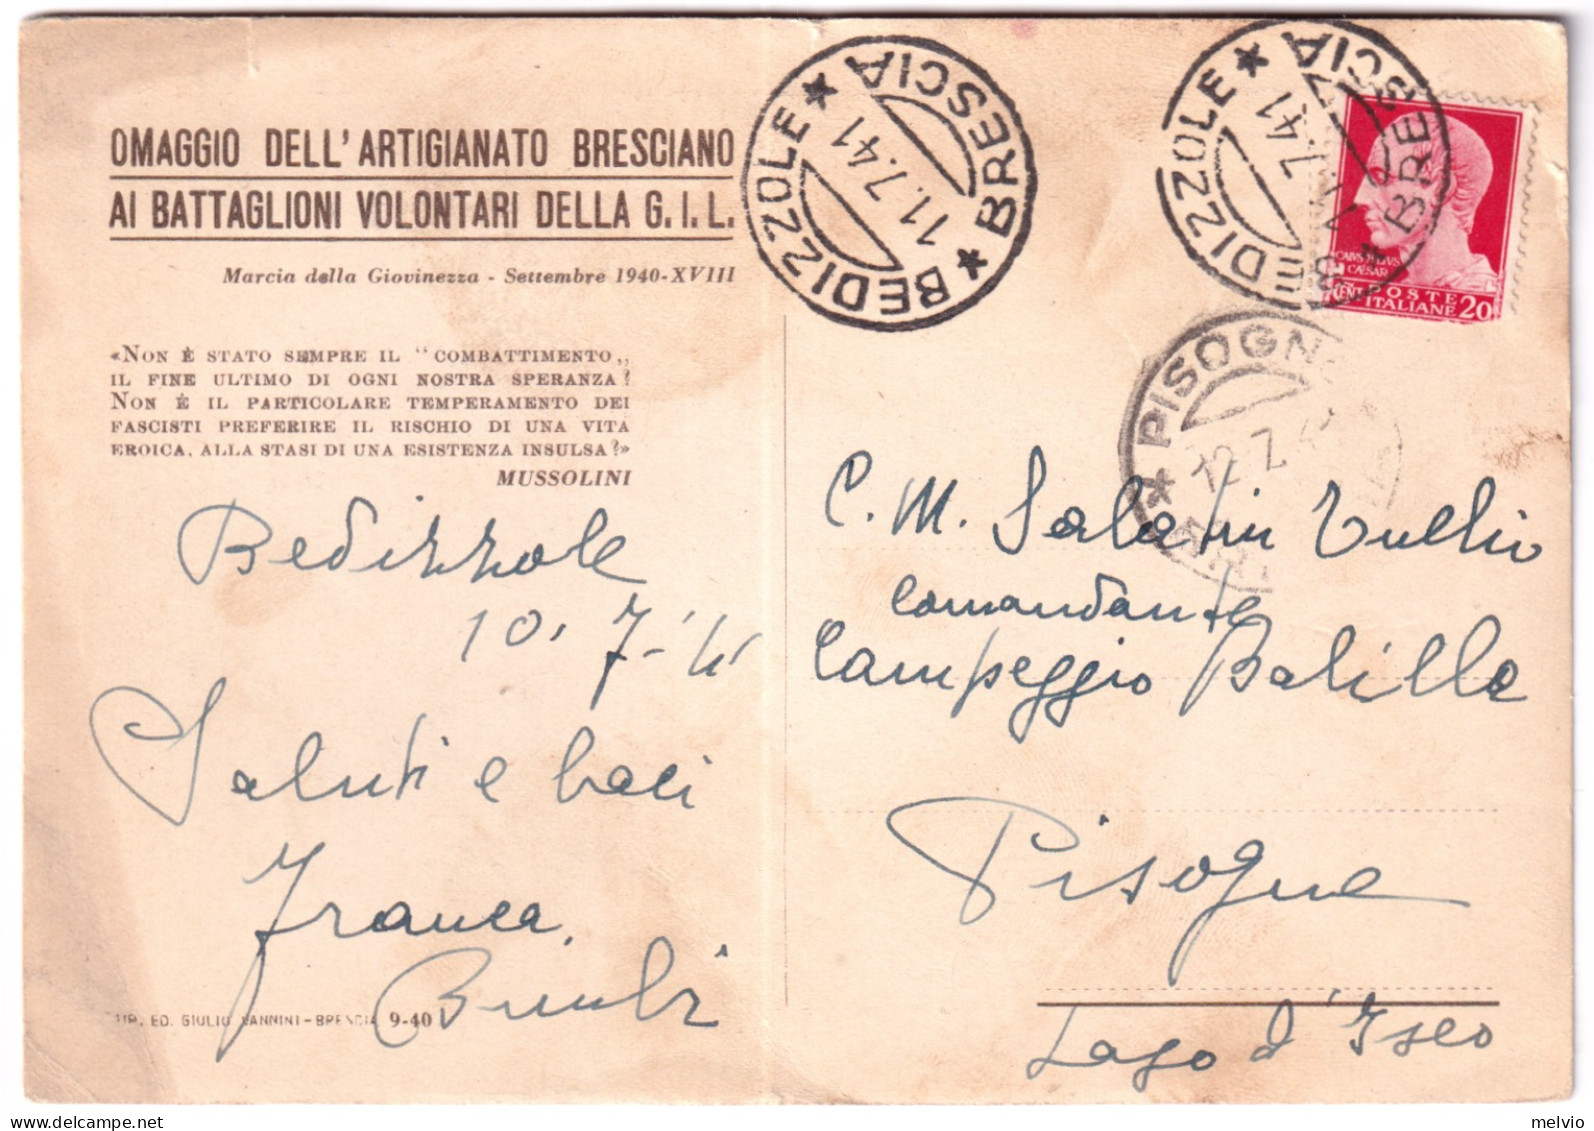 OMAGGIO DELL'ARTIGIANATO BRESCIANO
AI BATTAGLIONI VOLONTARI DELLA G.I.L.
Marcia della Giovinezza - Settembre 1940-XVIII
«NON È STATO SEMPRE IL "COMBATTIMENTO,,
IL FINE ULTIMO DI OGNI NOSTRA SPERANZA?
NON È IL PARTICOLARE TEMPERAMENTO DEI
FASCISTI PREFERIRE IL RISCHIO DI UNA VITA
EROICA, ALLA STASI DI UNA ESISTENZA INSULSA?»
MUSSOLINI
Bedizzole
10. 7-'41
Saluti e baci
Franca.
Bimbi
TIP. ED. GIULIO VANNINI-BRESCIA 9-40
BEDIZZOLE * BRESCIA *
11.7.41
BEDIZZOLE * BRESCIA *
7.41
CAIVS IVLIVS
CAESAR
CENT. 20
POSTE
ITALIANE
* PISOGN
12.7.4
C. M. Salatin Tullio
comandante
Campeggio Balilla
Pisogne
Lago d'Iseo
melvio